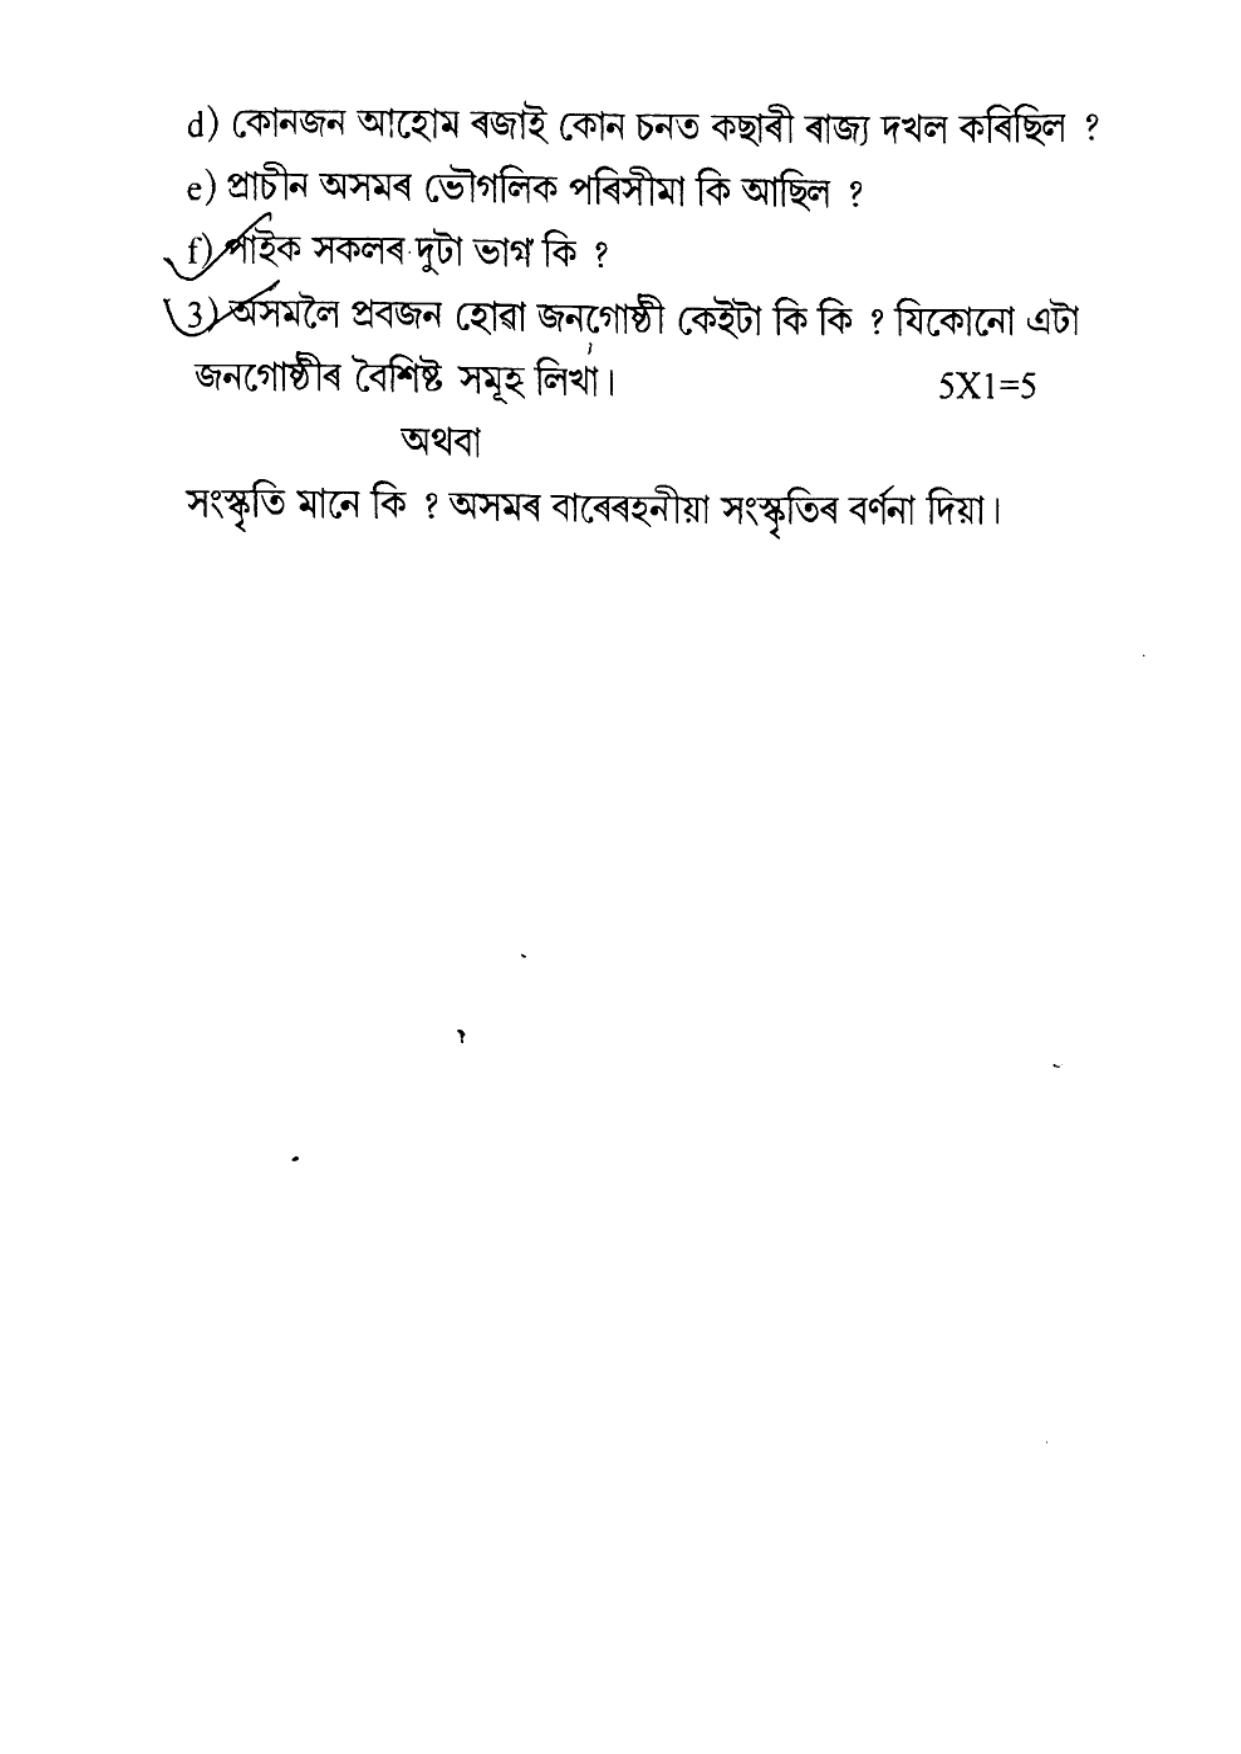 d) কোনজন আহোম ৰজাই কোন চনত কছাৰী ৰাজ্য দখল কৰিছিল ?
e) প্ৰাচীন অসমৰ ভৌগলিক পৰিসীমা কি আছিল ?
f) পাইক সকলৰ দুটা ভাগ কি ?
3) অসমলৈ প্ৰবজন হোৱা জনগোষ্ঠী কেইটা কি কি ? যিকোনো এটা
জনগোষ্ঠীৰ বৈশিষ্ট সমূহ লিখা। 5X1=5
অথবা
সংস্কৃতি মানে কি ? অসমৰ বাৰেৰহনীয়া সংস্কৃতিৰ বৰ্ণনা দিয়া।